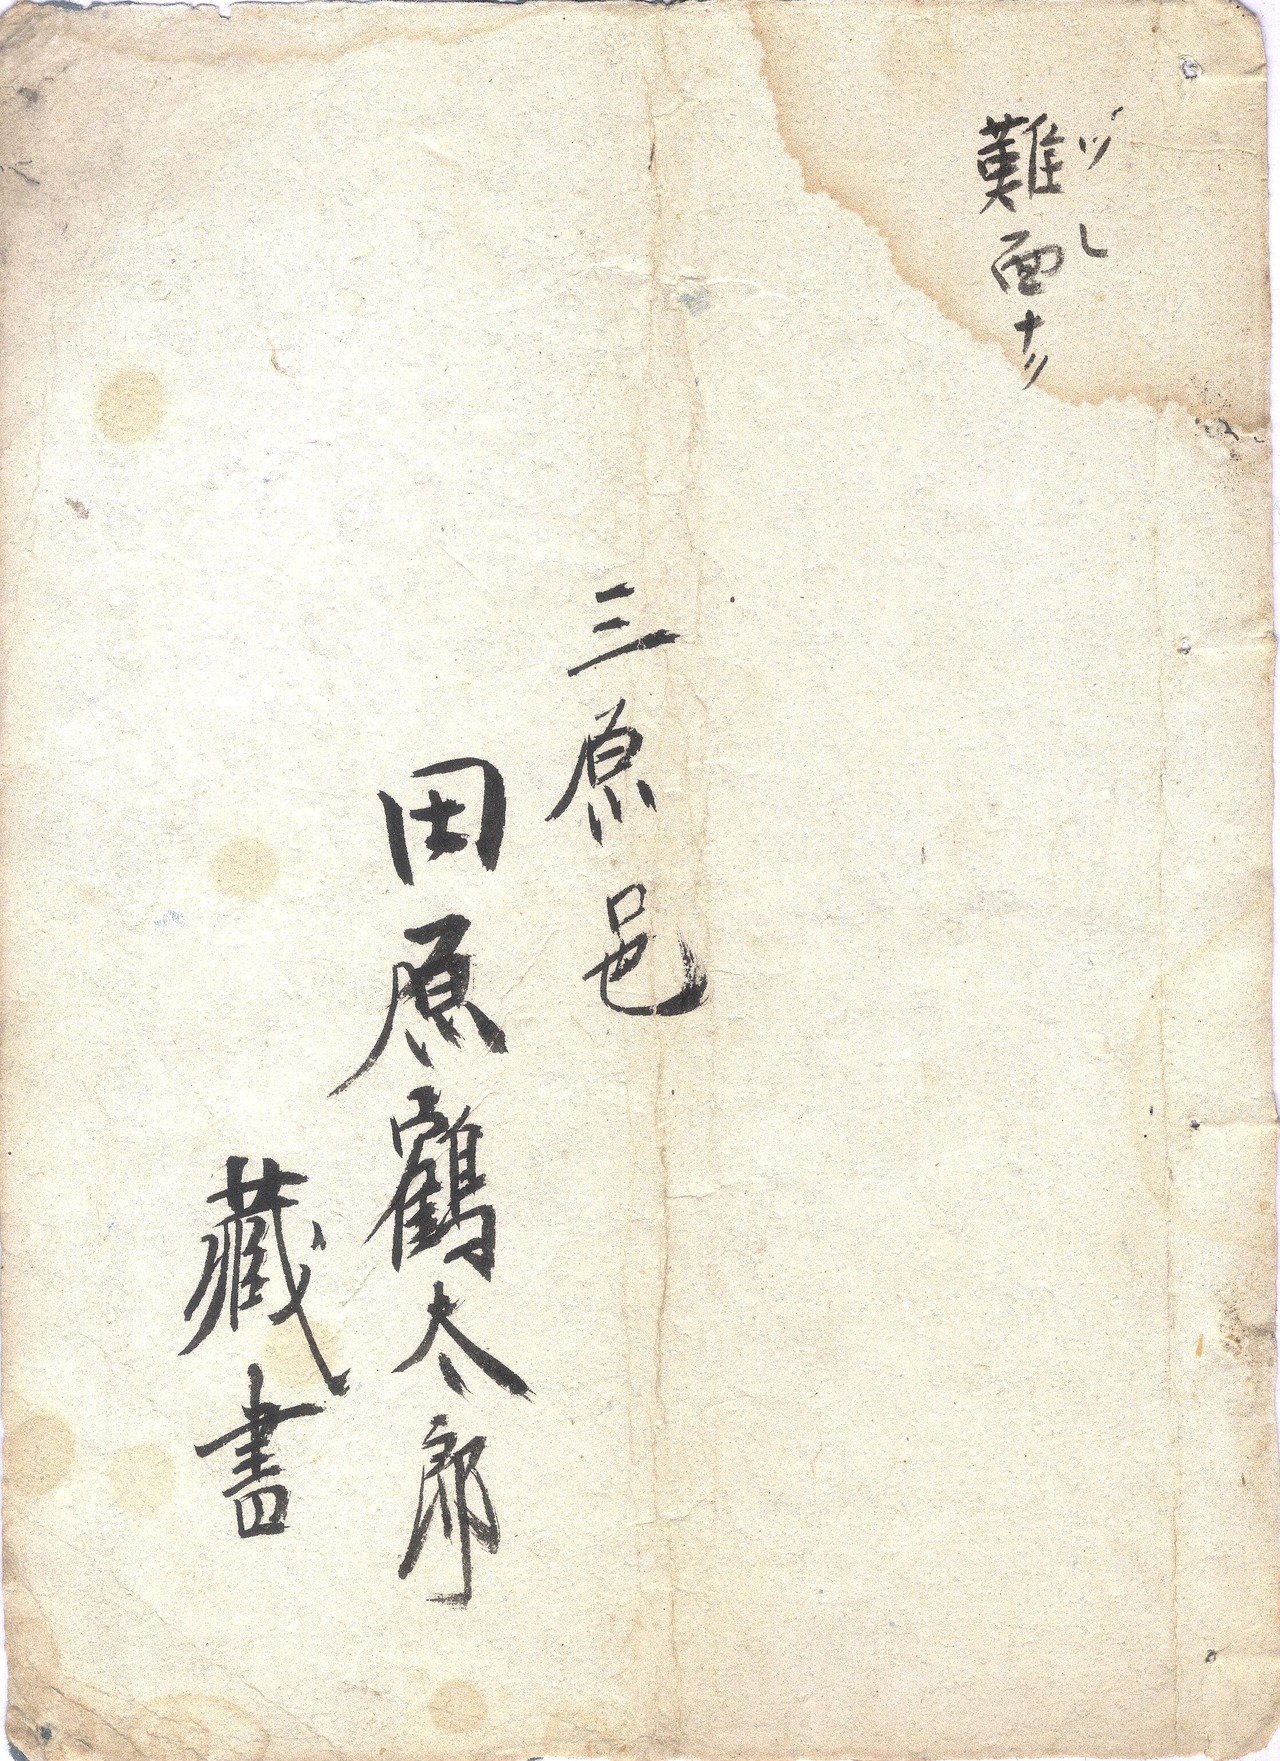 難面ナリ
三原邑
田原鶴太郎
藏書